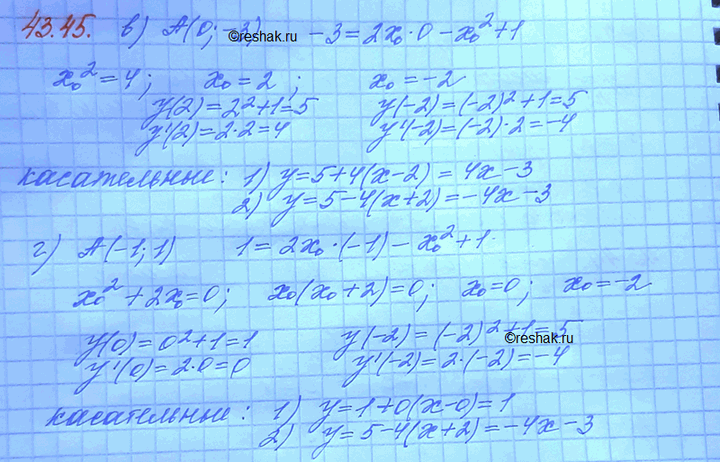 43.45. в) A(0; -3) ©reshak.ru -3=2x₀·0-x₀²+1
x₀²=4; x₀=2; x₀=-2
y(2)=2²+1=5 y(-2)=(-2)²+1=5
y'(2)=2·2=4 y'(-2)=(-2)·2=-4
касательные: 1) y=5+4(x-2)=4x-3
2) y=5-4(x+2)=-4x-3
г) A(-1; 1) 1=2x₀·(-1)-x₀²+1
x₀²+2x₀=0; x₀(x₀+2)=0; x₀=0; x₀=-2
y(0)=0²+1=1 y(-2)=(-2)²+1=5
©reshak.ru
y'(0)=2·0=0 y'(-2)=2·(-2)=-4
касательные: 1) y=1+0(x-0)=1
2) y=5-4(x+2)=-4x-3